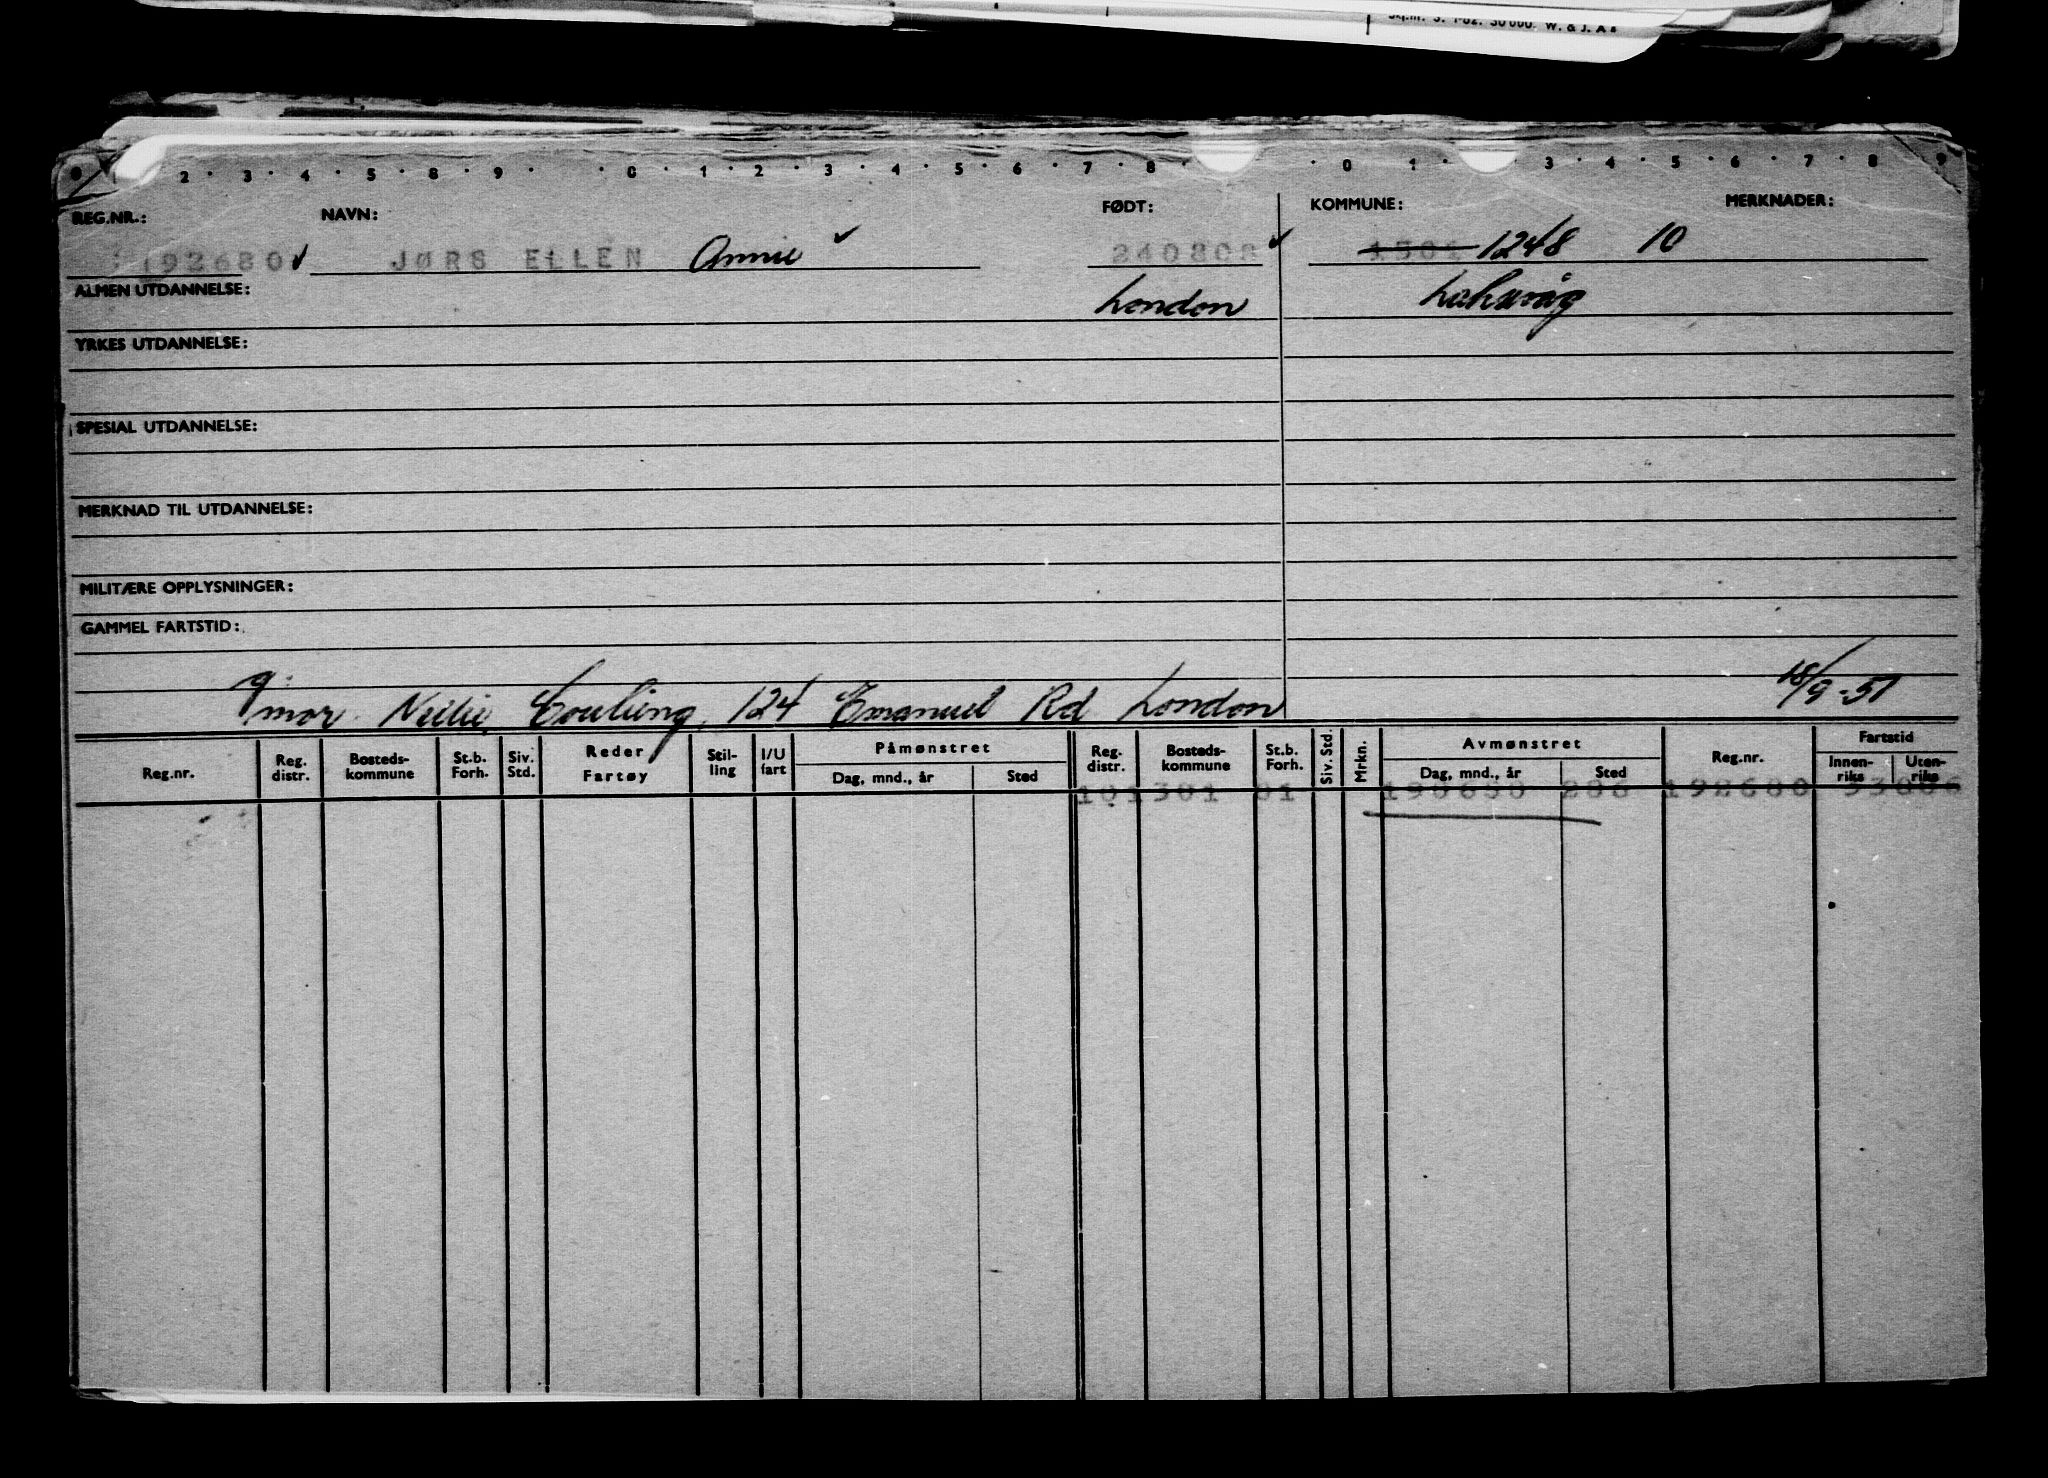 Skj.nr. 3. 1-62. 30 000. W. & J. A s
0 2 · 3 · 4 · 5 · 8 · 9 · · 0 · 1 · 2 · 3 · 4 · 5 · 6 · 7 · 8 · · 0 · 1 · 3 · 4 · 5 · 6 · 7 · 8 · 9
REG.NR.: NAVN: FØDT: KOMMUNE: MERKNADER:
192680 ✓ JØRS ELLEN Annie ✓ 240808 ✓ 1301 1248 10
ALMEN UTDANNELSE: London Laksevåg
YRKES UTDANNELSE:
SPESIAL UTDANNELSE:
MERKNAD TIL UTDANNELSE:
MILITÆRE OPPLYSNINGER:
GAMMEL FARTSTID:
g:
mor Nellie 124 Emanuel Rd London 18/9-51
Reg.nr. Reg. distr. Bosteds-kommune St.b. Forh. Siv. Std. Reder Fartøy Stil-ling I/U fart Påmønstret Dag, mnd., år Sted Reg. distr. Bosteds-kommune St.b. Forh. Siv. Std. Mrkn. Avmønstret Dag, mnd., år Sted Reg.nr. Fartstid Innen-riks Uten-riks
101301 01 192680